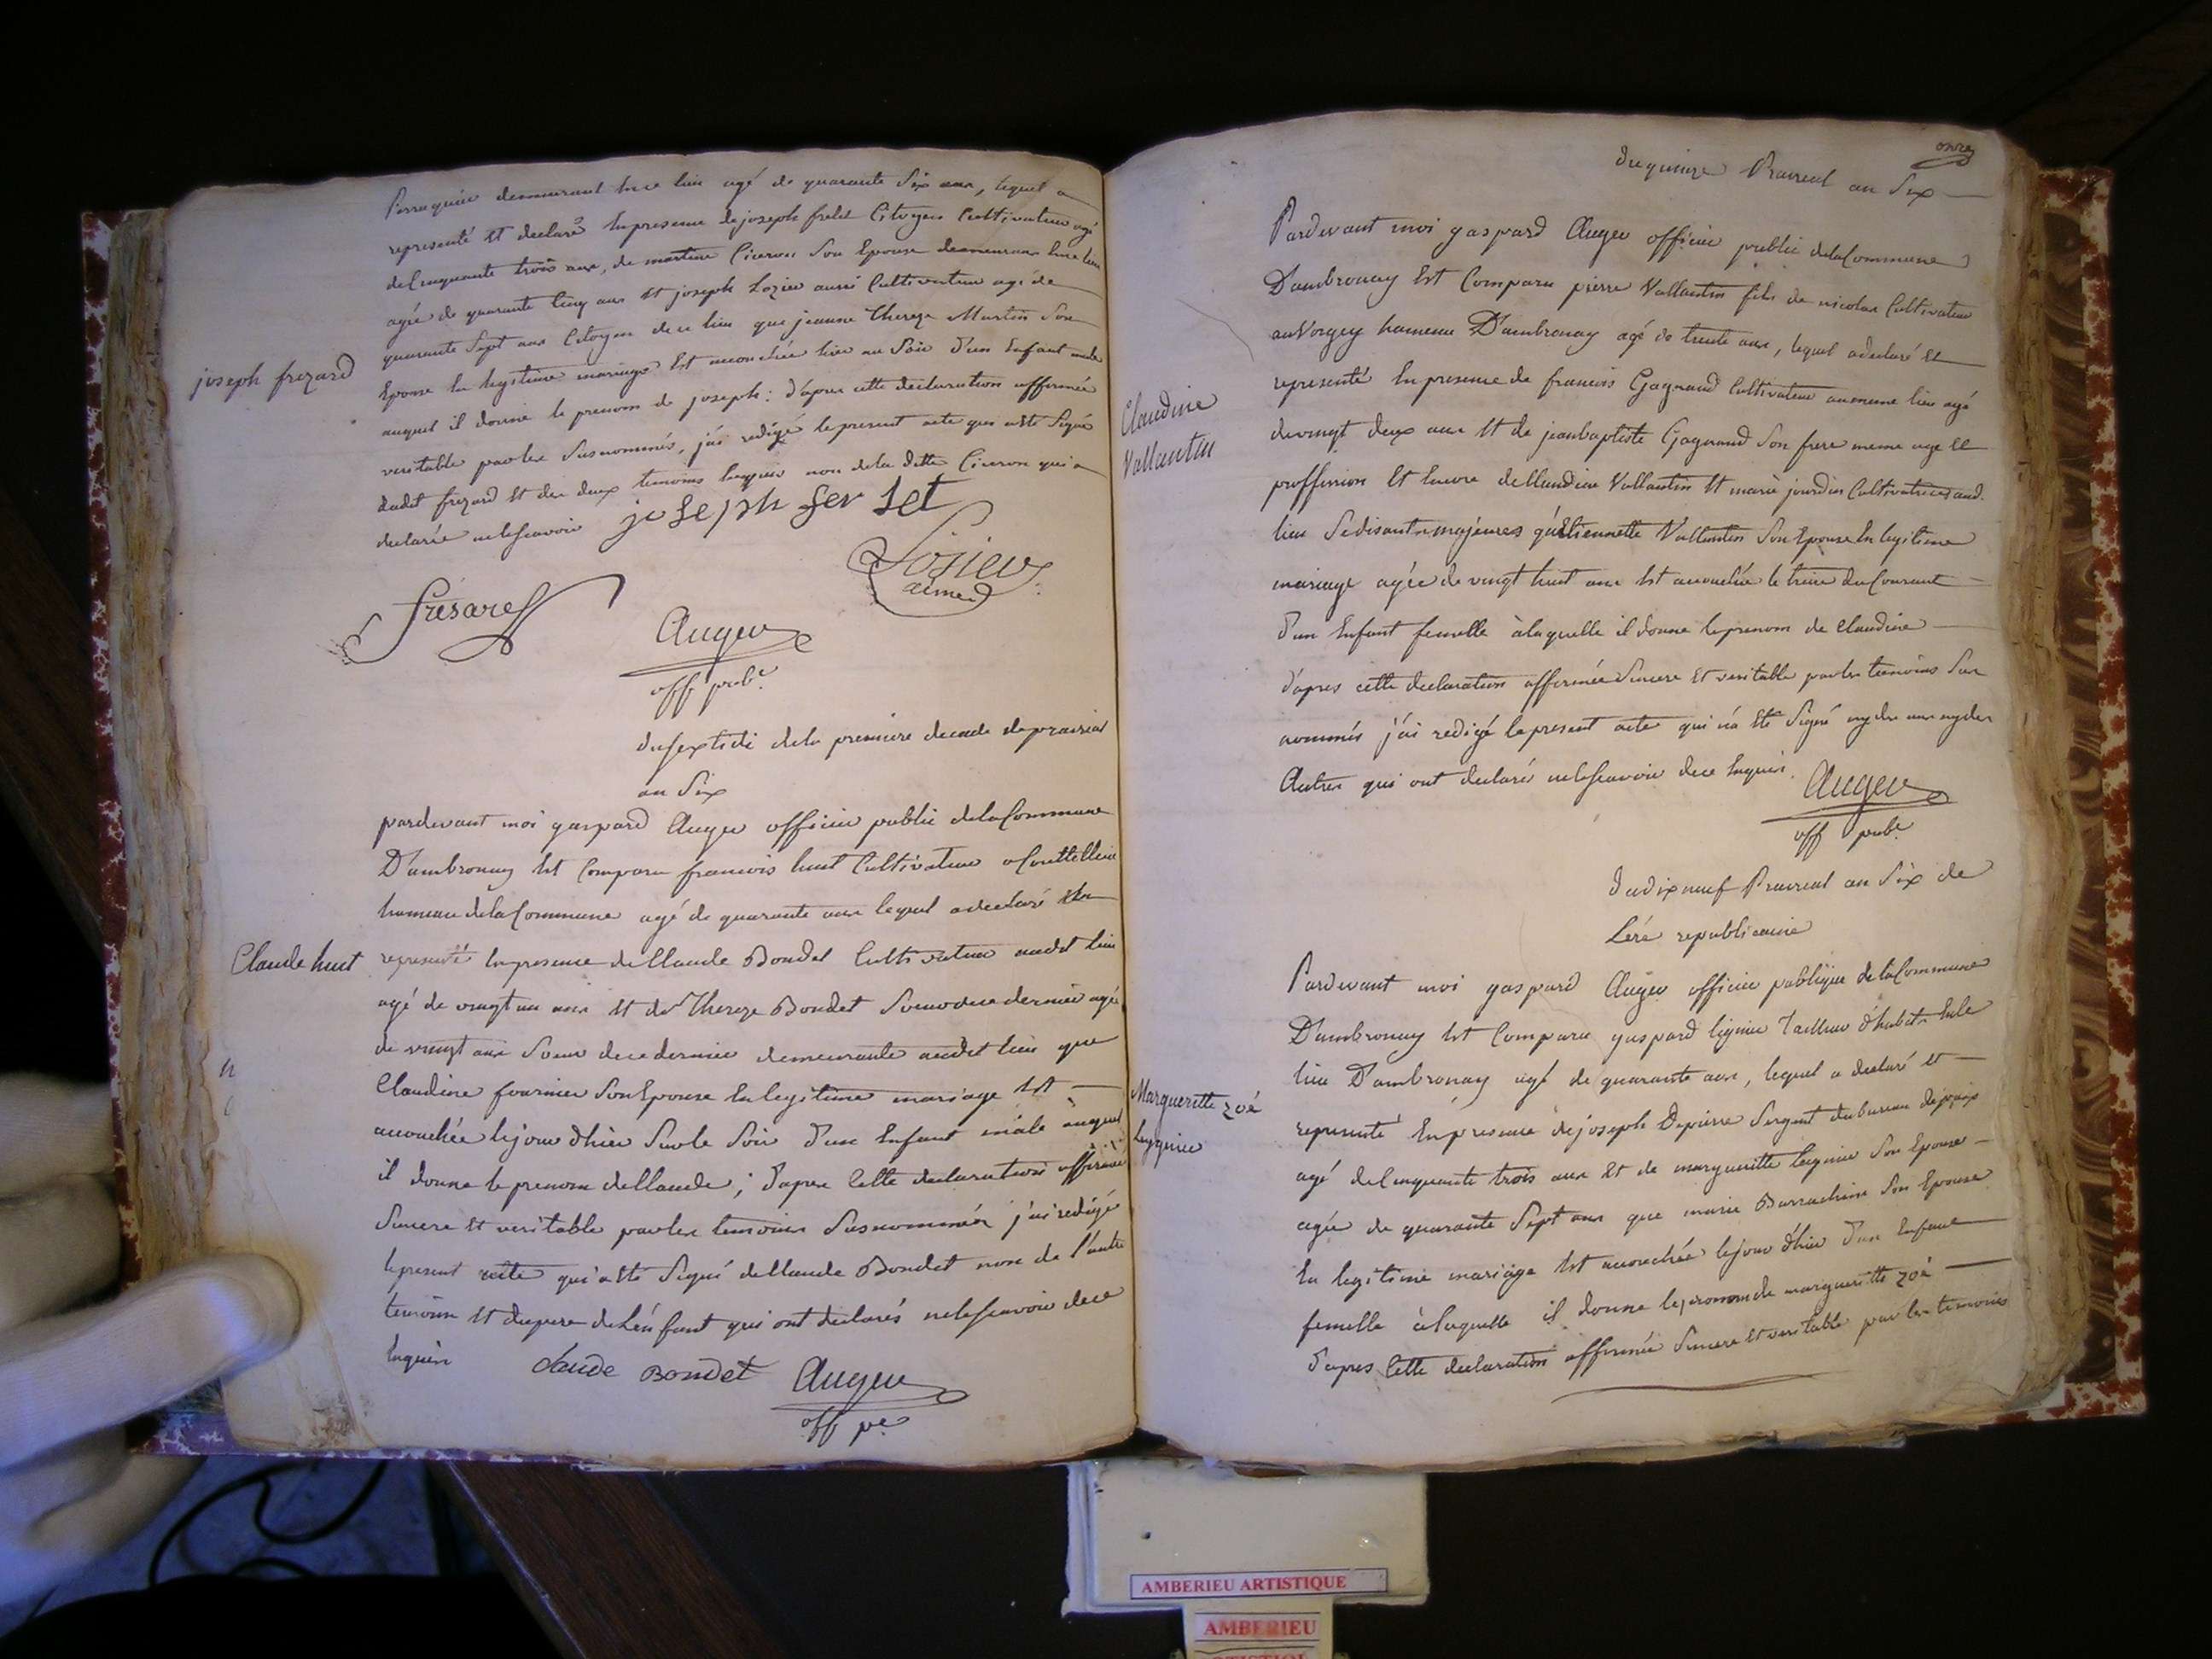 Perruquier demeurant en ce lieu agé de quarante Six ans, lequel a
representé Et declaré En presence de joseph frelet Citoyen Cultivateur agé
de Cinquante trois ans, de martine Ciceron Son Epouse demeurans En ce lieu
agée de quarante Cinq ans Et joseph Lozier aussi Cultivateur agé de
quarante Sept ans Citoyen de ce lieu que jeanne Thereze Martin Son
Epouse En legitime mariage Est accouchée hier au Soir d'un Enfant male
auquel il donne le prenom de joseph : d'apres cette declaration affirmée
veritable par les Susnommés, j'ai redigé le present acte qui a Eté Signé
dudit frezard Et des deux temoins Enquis non de la ditte Ciceron qui a
declarée ne le Scavoir
joseph frezard
joseph fer let
Losier
aimed
frésard
Auger
off pub.e
du Sextidi de la premiere decade de prairial
an Six
pardevant moi gaspard Auger officier public de la Commune
D'ambronay Est Comparu francois huet Cultivateur a Couttelieu
hameau de la Commune agé de quarante ans lequel a declaré Et
Claude huet
representé En presence de Claude Bondet Cultivateur audit lieu
agé de vingt un ans Et de Thereze Bondet Soeur de ce dernier agée
de vingt ans Soeur de ce dernier demeurante audit lieu que
Claudine fournier Son Epouse En legitime mariage Est
accouchée le jour d'hier Sur le Soir d'un Enfant male auquel
il donne le prenom de Claude ; d'apres Cette declaration affirmée
Sincere Et veritable par les temoins Susnommés j'ai redigé
le present acte qui a Eté Signé de Claude Bondet non de l'autre
temoin Et du pere de L'enfant qui ont declarés ne le Scavoir de ce
Enquis
claude Bondet
Auger
off p.e
onze
du quinze Prairial an Six
Pardevant moi gaspard Auger officier public de la Commune
D'ambronay Est Comparu pierre Vallantin fils de nicolas Cultivateur
au Vorgey hameau D'ambronay agé de trente ans, lequel a declaré Et
representé En presence de francois Gagnaud Cultivateur au meme lieu agé
de vingt deux ans Et de jean baptiste Gagnaud Son frere meme age Et
proffession Et Encore de Claudine Vallantin Et marie jourdin Cultivatrices aud.
lieu Se disant majeures qu'Etiennette Vallantin Son Epouse En legitime
mariage agée de vingt huit ans Est accouchée le treize du Courant
d'un Enfant femelle a laquelle il donne le prenom de Claudine
d'apres cette declaration affirmée Sincere Et veritable par les temoins Sus
nommés j'ai redigé le present acte qui n'a Eté Signé ny des uns ny des
Autres qui ont declarés ne le Scavoir de ce Enquis.
Claudine
Vallantin
Auger
off pub.e
du dix neuf Prairial an Six de
L'ere republicaine
Pardevant moi gaspard Auger officier publique de la Commune
D'ambronay Est Comparu gaspard leynier Tailleur d'habits En le
lieu D'ambronay agé de quarante ans, lequel a declaré Et
representé En presence de joseph Depierre Sergent du bureau de paix
agé de Cinquante trois ans Et de margueritte leynier Son Epouse
agée de quarante Sept ans que marie Barrachin Son Epouse
En legitime mariage Est accouchée le jour d'hier d'un Enfant
femelle a laquelle il donne le prenom de margueritte zoé
d'apres Cette declaration affirmée Sincere Et veritable par les temoins
Margueritte zoé
leygnier
AMBERIEU ARTISTIQUE
AMBERIEU
ARTISTIQUE